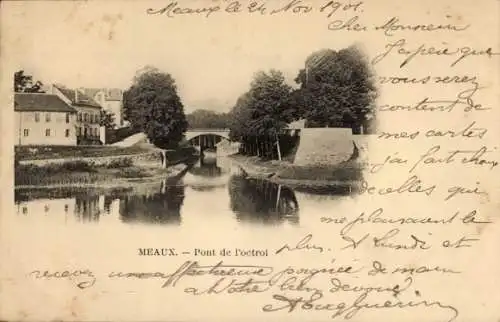 Meaux le 24 Nov 1901
Cher Monsieur
J'espère que
vous serez
content de
mes cartes
j'ai fait choix
de celles qui
me plaisent
plus. A Lundi et
MEAUX. — Pont de l'octroi
recevez une affectueuse poignée de main
à Votre bien dévoué
Guerin